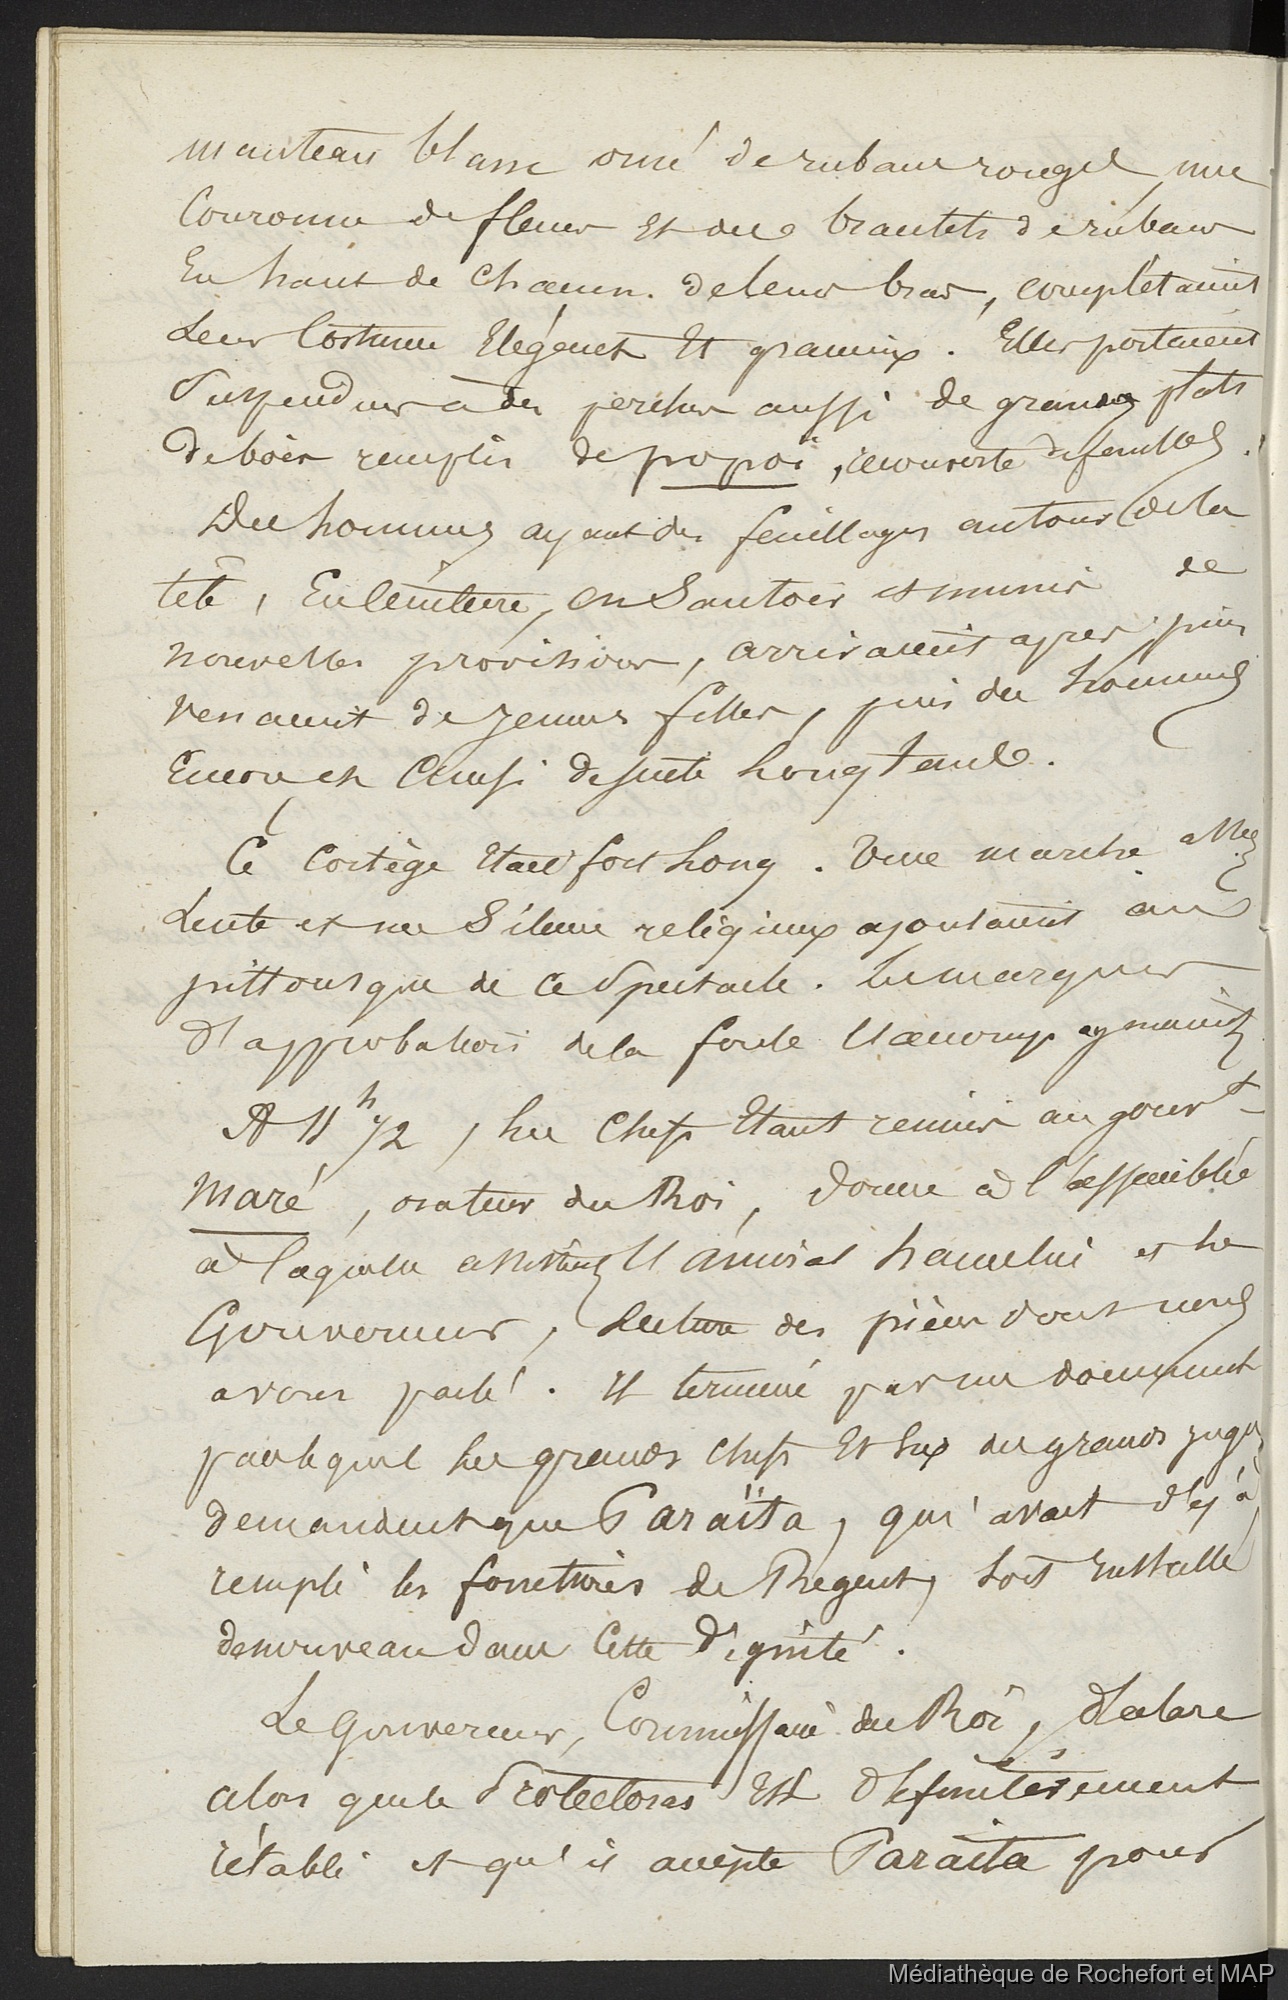 manteau blanc orné de rubans rouges, une
Couronne de fleurs et des bracelets de rubans
En haut de chacun de leurs bras, complétaient
Leur Costume Elégant Et gracieux. Elles portaient
Suspendues à des perches aussi de grands plats
de bois remplis de popoï, recouverts de feuilles.
Des hommes ayant des feuillages autour de la
tête, En Ceinture, en Sautoir et munis de
nouvelles provisions, arrivaient après puis
venaient de jeunes filles, puis des hommes
Encore et Ainsi de suite longtems.
Ce Cortège était fort long. Une marche assez
Lente et un Silence religieux ajoutaient au
pittoresque de ce Spectacle. Les marques
d'approbation de la foule l'accompagnaient
A 11 h 1/2, les Chefs Etant réunis au gouvt
Maré, orateur du Roi, donne à l'assemblée
à laquelle assistent l'amiral hamelin et le
Gouverneur, Lecture des pièces dont nous
avons parlé. Il termine par un document
par lequel les grands chefs Et les grands juges
demandent que Paraïta, qui avait déjà
rempli les fonctions de Régent, soit Installé
de nouveau dans Cette Dignité.
Le gouverneur, Commissaire du Roi, déclare
alors que le Protectorat Est définitivement
rétabli et qu'il accepte Paraïta pour
Médiathèque de Rochefort et MAP